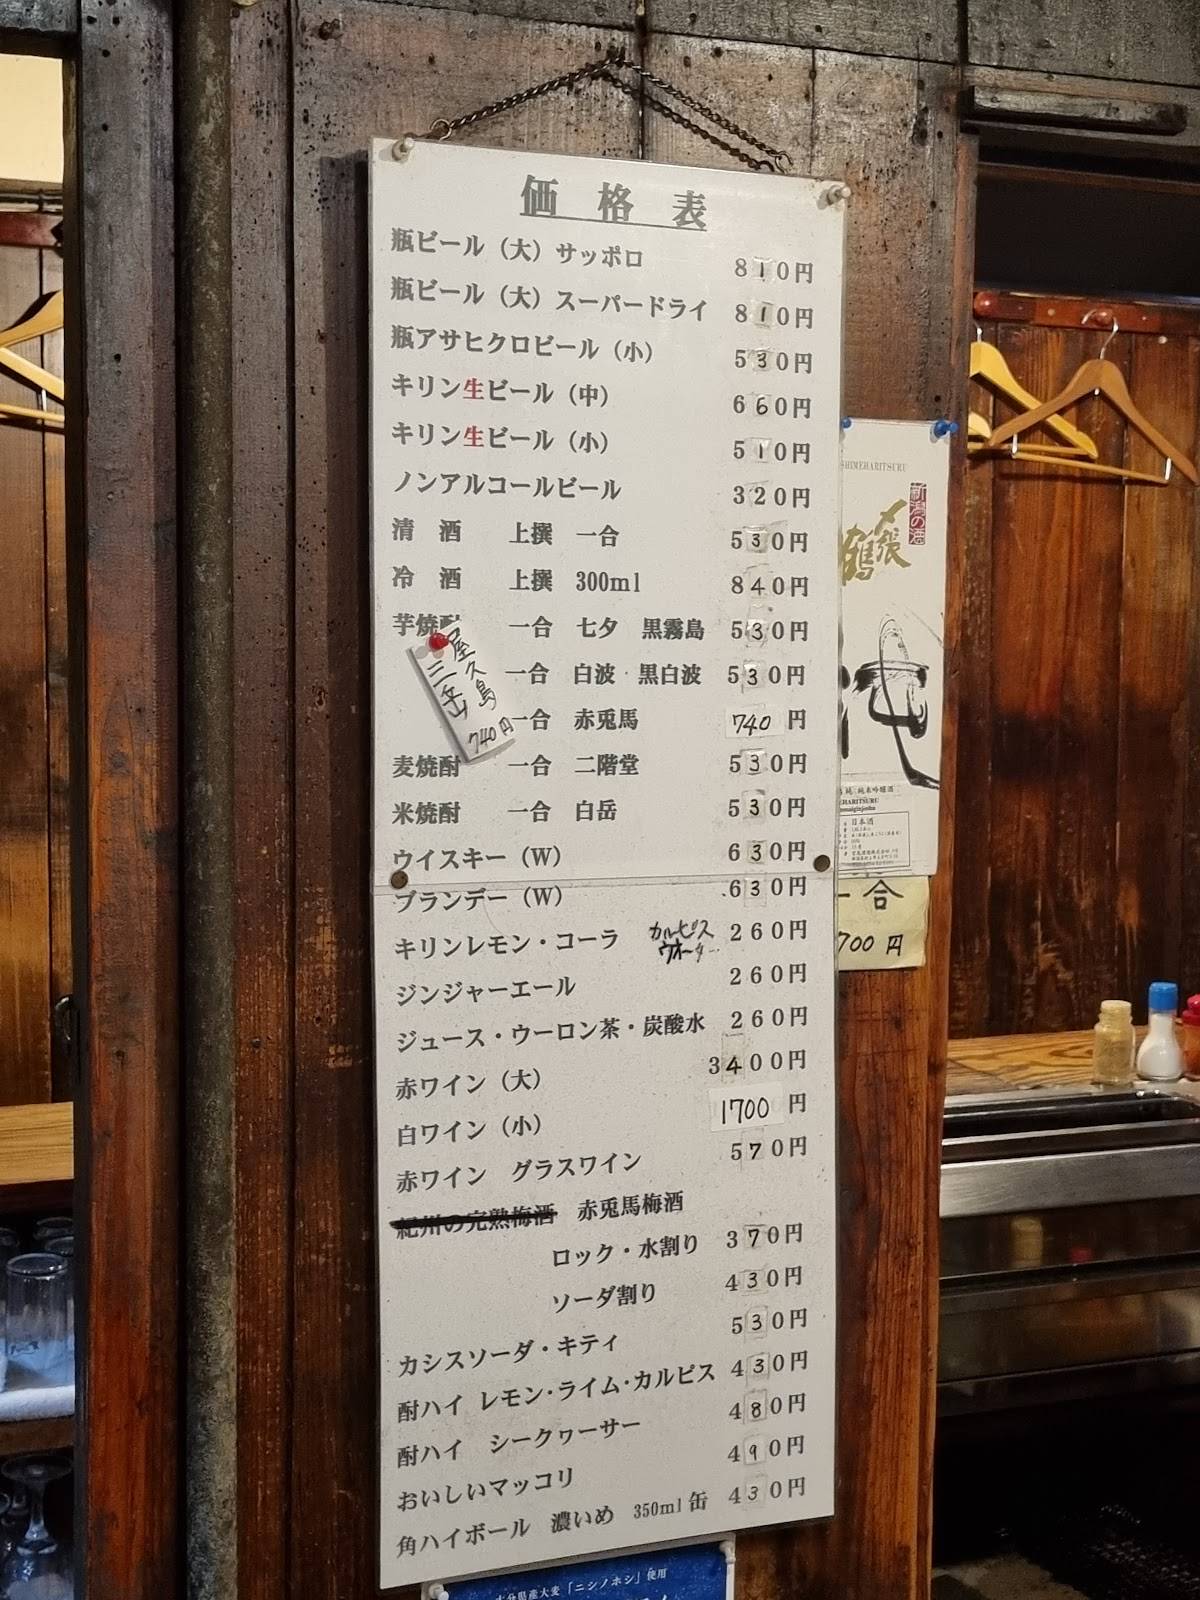 価格表
瓶ビール（大）サッポロ 810円
瓶ビール（大）スーパードライ 810円
瓶アサヒクロビール（小） 530円
キリン生ビール（中） 660円
キリン生ビール（小） 510円
ノンアルコールビール 320円
清 酒 上撰 一合 530円
冷 酒 上撰 300ml 840円
芋焼酎 一合 七夕 黒霧島 530円
一合 白波・黒白波 530円
一合 赤兎馬 740円
屋久島
三岳
740円
麦焼酎 一合 二階堂 530円
米焼酎 一合 白岳 530円
ウイスキー（W） 630円
ブランデー（W） 630円
キリンレモン・コーラ カルピスウォーター 260円
ジンジャーエール 260円
ジュース・ウーロン茶・炭酸水 260円
赤ワイン（大） 3400円
白ワイン（小） 1700円
赤ワイン グラスワイン 570円
紀州の完熟梅酒 赤兎馬梅酒
ロック・水割り 370円
ソーダ割り 430円
カシスソーダ・キティ 530円
酎ハイ レモン・ライム・カルピス 430円
酎ハイ シークヮーサー 480円
おいしいマッコリ 490円
角ハイボール 濃いめ 350ml缶 430円
SHIMEHARITSURU
新潟の酒
〆張鶴
純
純 純米吟醸酒
日本酒
一合
700円
大分県産大麦「ニシノホシ」使用